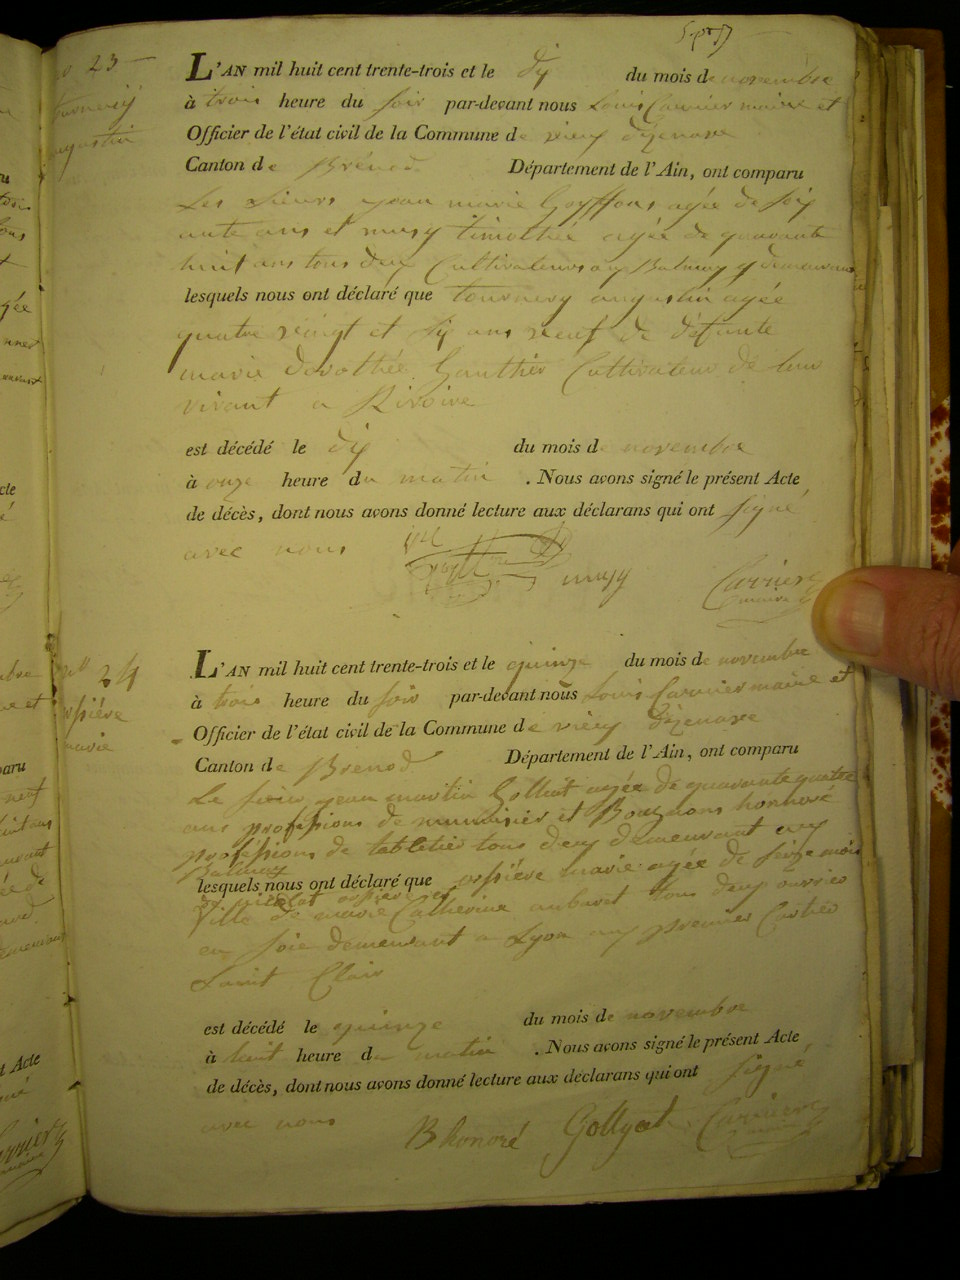 n° 23
tournery
augustin
L'AN mil huit cent trente-trois et le dix du mois de novembre
à trois heure du soir par-devant nous Louis Carrier maire et
Officier de l'état civil de la Commune de vieux dizenave
Canton de Brénod Département de l'Ain, ont comparu
Les Sieurs jean marie Goyffons agée de soix
ante ans et musy timothée agée de quarante
huit ans tous deux Cultivateurs aux Balmay y demeurans
lesquels nous ont déclaré que tournery augustin agée
quatre vingt et six ans veuf de défunte
marie dorothée Gauthier Cultivateur de leur
vivant a Riroire
est décédé le dix du mois de novembre
à onze heure du matin . Nous avons signé le présent Acte
de décès, dont nous avons donné lecture aux déclarans qui ont signé
avec nous
musy Carrier
maire
n° 24
orsière
marie
L'AN mil huit cent trente-trois et le quinze du mois de novembre
à trois heure du soir par-devant nous Louis Carrier maire et
Officier de l'état civil de la Commune de vieux dizenave
Canton de Brenod Département de l'Ain, ont comparu
Le sieur jean martin Golliat agée de quarante quatre
ans professions de menuisier et Bouznons honnoré
professions de tabletier tous deux demeurant aux
Balmay
lesquels nous ont déclaré que orsière marie agée de seize mois
fille de marie Catherine aubaret tous deux ouvrier
en soie demeurant a Lyon aux premier Cartier
Saint Clair
est décédé le quinze du mois de novembre
à huit heure du matin . Nous avons signé le présent Acte
de décès, dont nous avons donné lecture aux déclarans qui ont signé
avec nous
B honoré Gollyat Carrier
maire